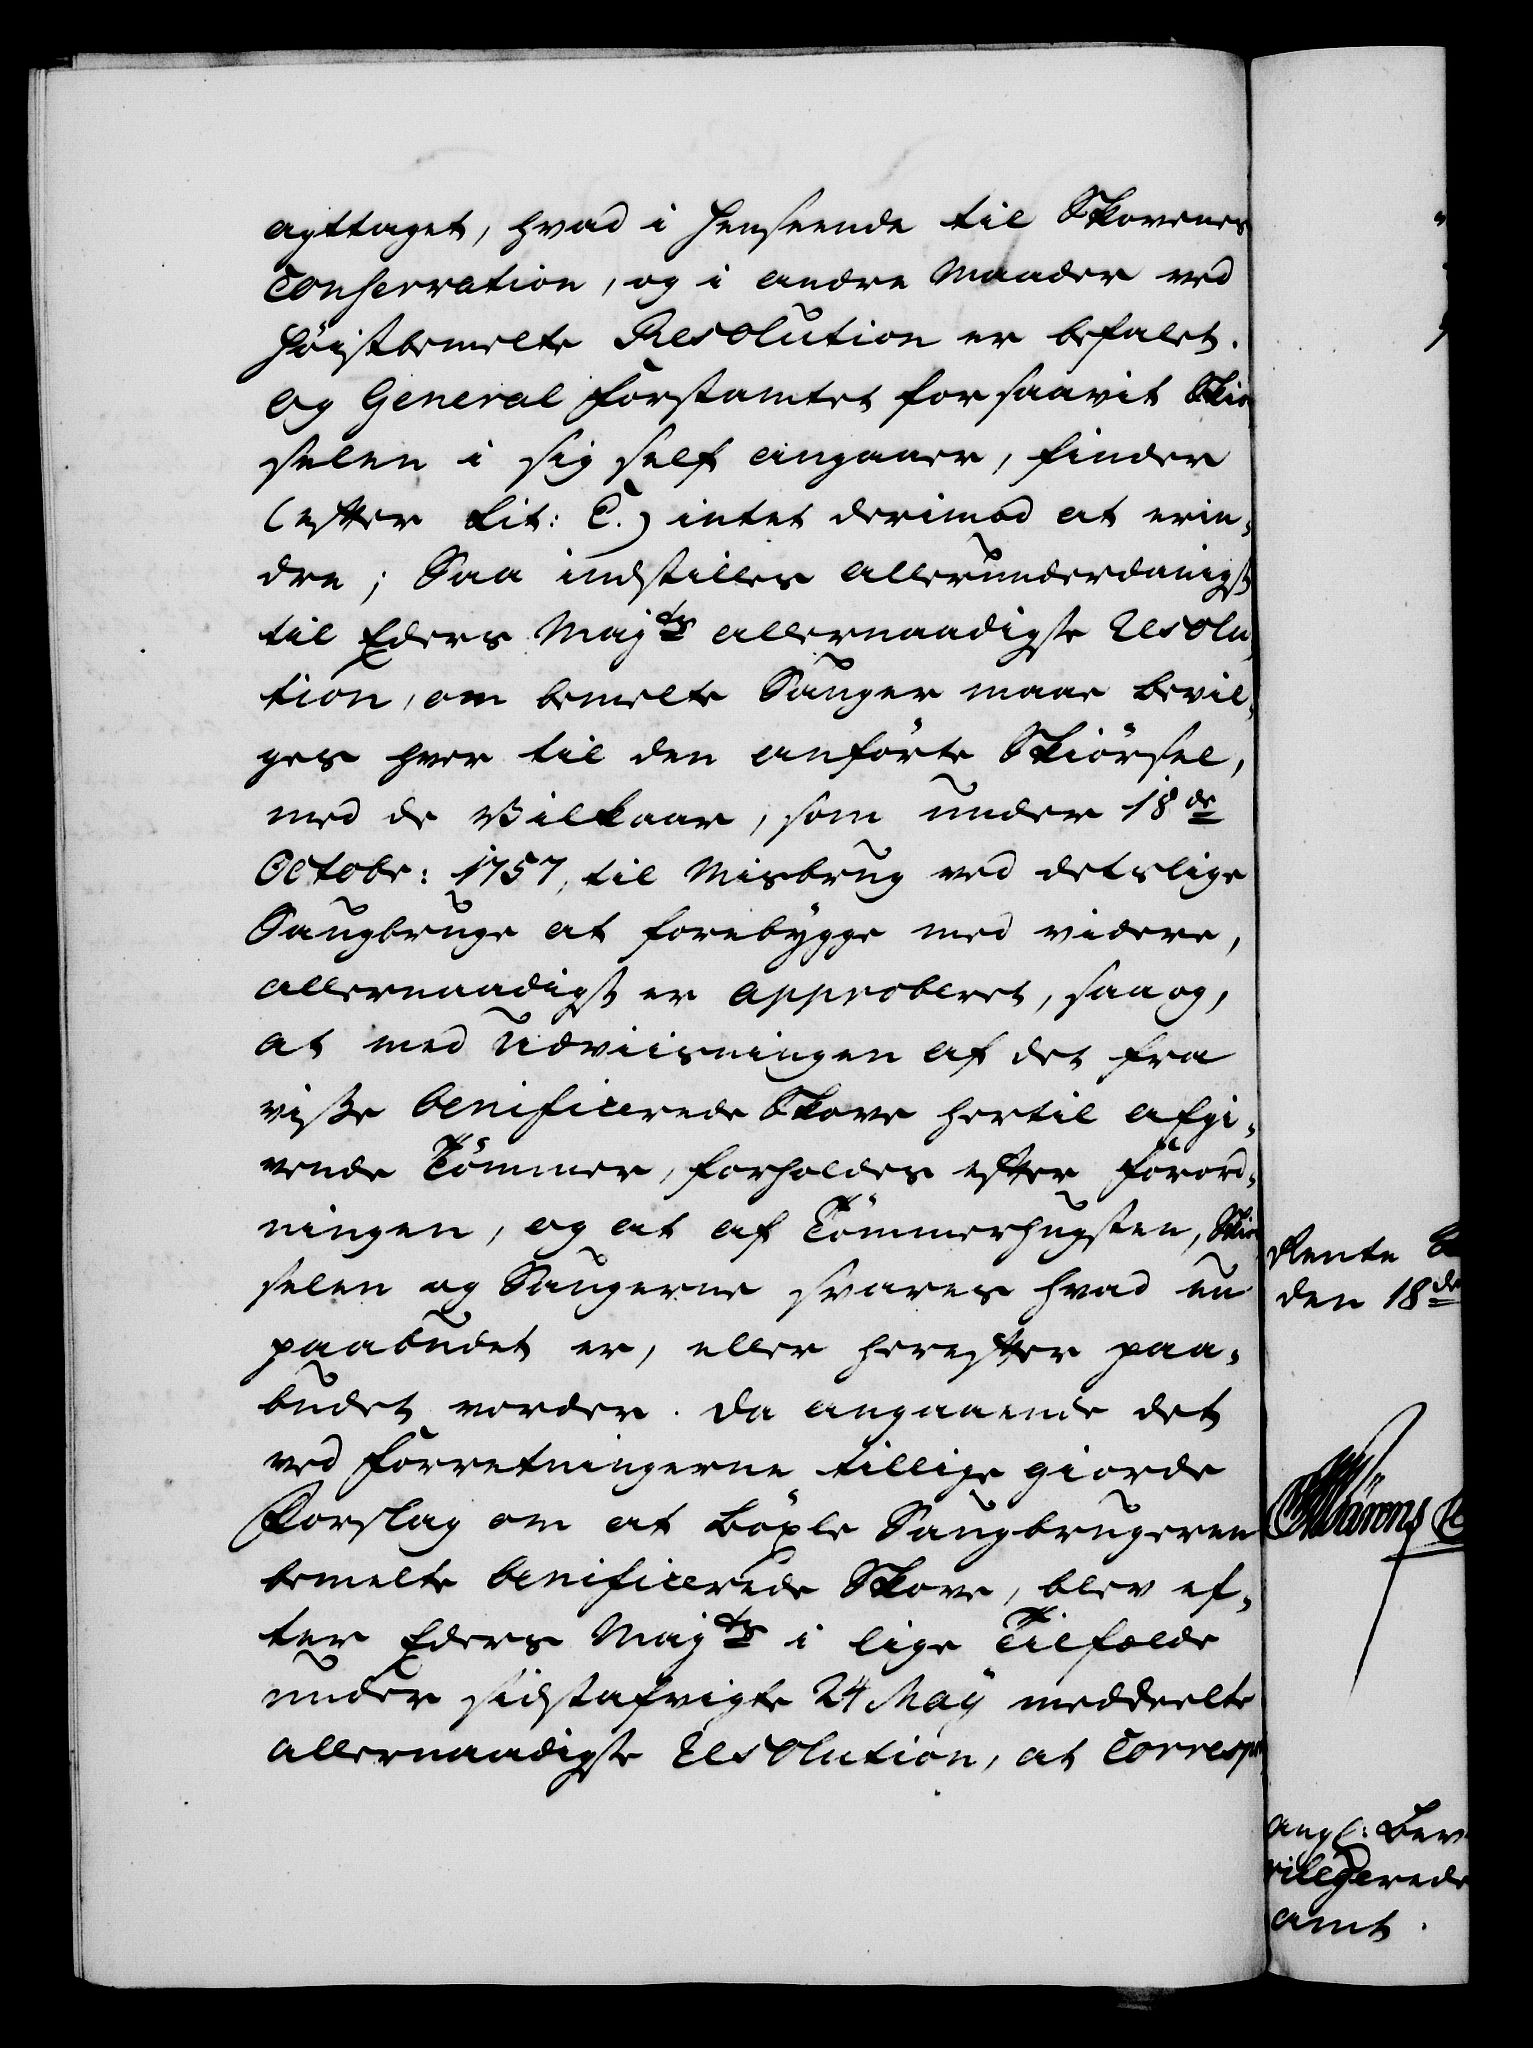 agttaget, hvad i Henseende til Skovenes
Conservation, og i andre Maader ved
Höistbemelte Resolution er befalet.
Og General Forstamtet forsaavit Skiör
selen i sig self angaaer, finder
(efter Lit: C.) intet derimod at erin-
dre; Saa indstilles allerunderdanigst
til Eders Majts allernaadigste Resolu
tion, om bemelte Sauger maae bevil-
ges hver til den anförte Skiörsel,
med de Vilkaar, som under 18de
Octobr: 1757, til Misbrug ved detslige
Saugbruge at forebygge med videre,
allernaadigst er approberet, saa og,
at med Udviisningen af det fra
visse benificerede Skove hertil afgi-
vende Tömmer, forholdes efter Forord-
ningen, og at af Tömmerhugsten, Skiör
selen og Saugerne svares hvad nu
paabudet er, eller herefter paa-
budet vorder. Da angaaende det
ved Forretningerne tillige giorde
Forslag om at Böxle Saugbrugeren
bemelte benificerede Skove, blev ef-
ter Eders Majts i lige Tilfælde
under sidstafvigte 24 Maÿ meddeelte
allernaadigste Resolution, at Corresp
Rente
den 18de
angl: Bev
vilegerede
amt.